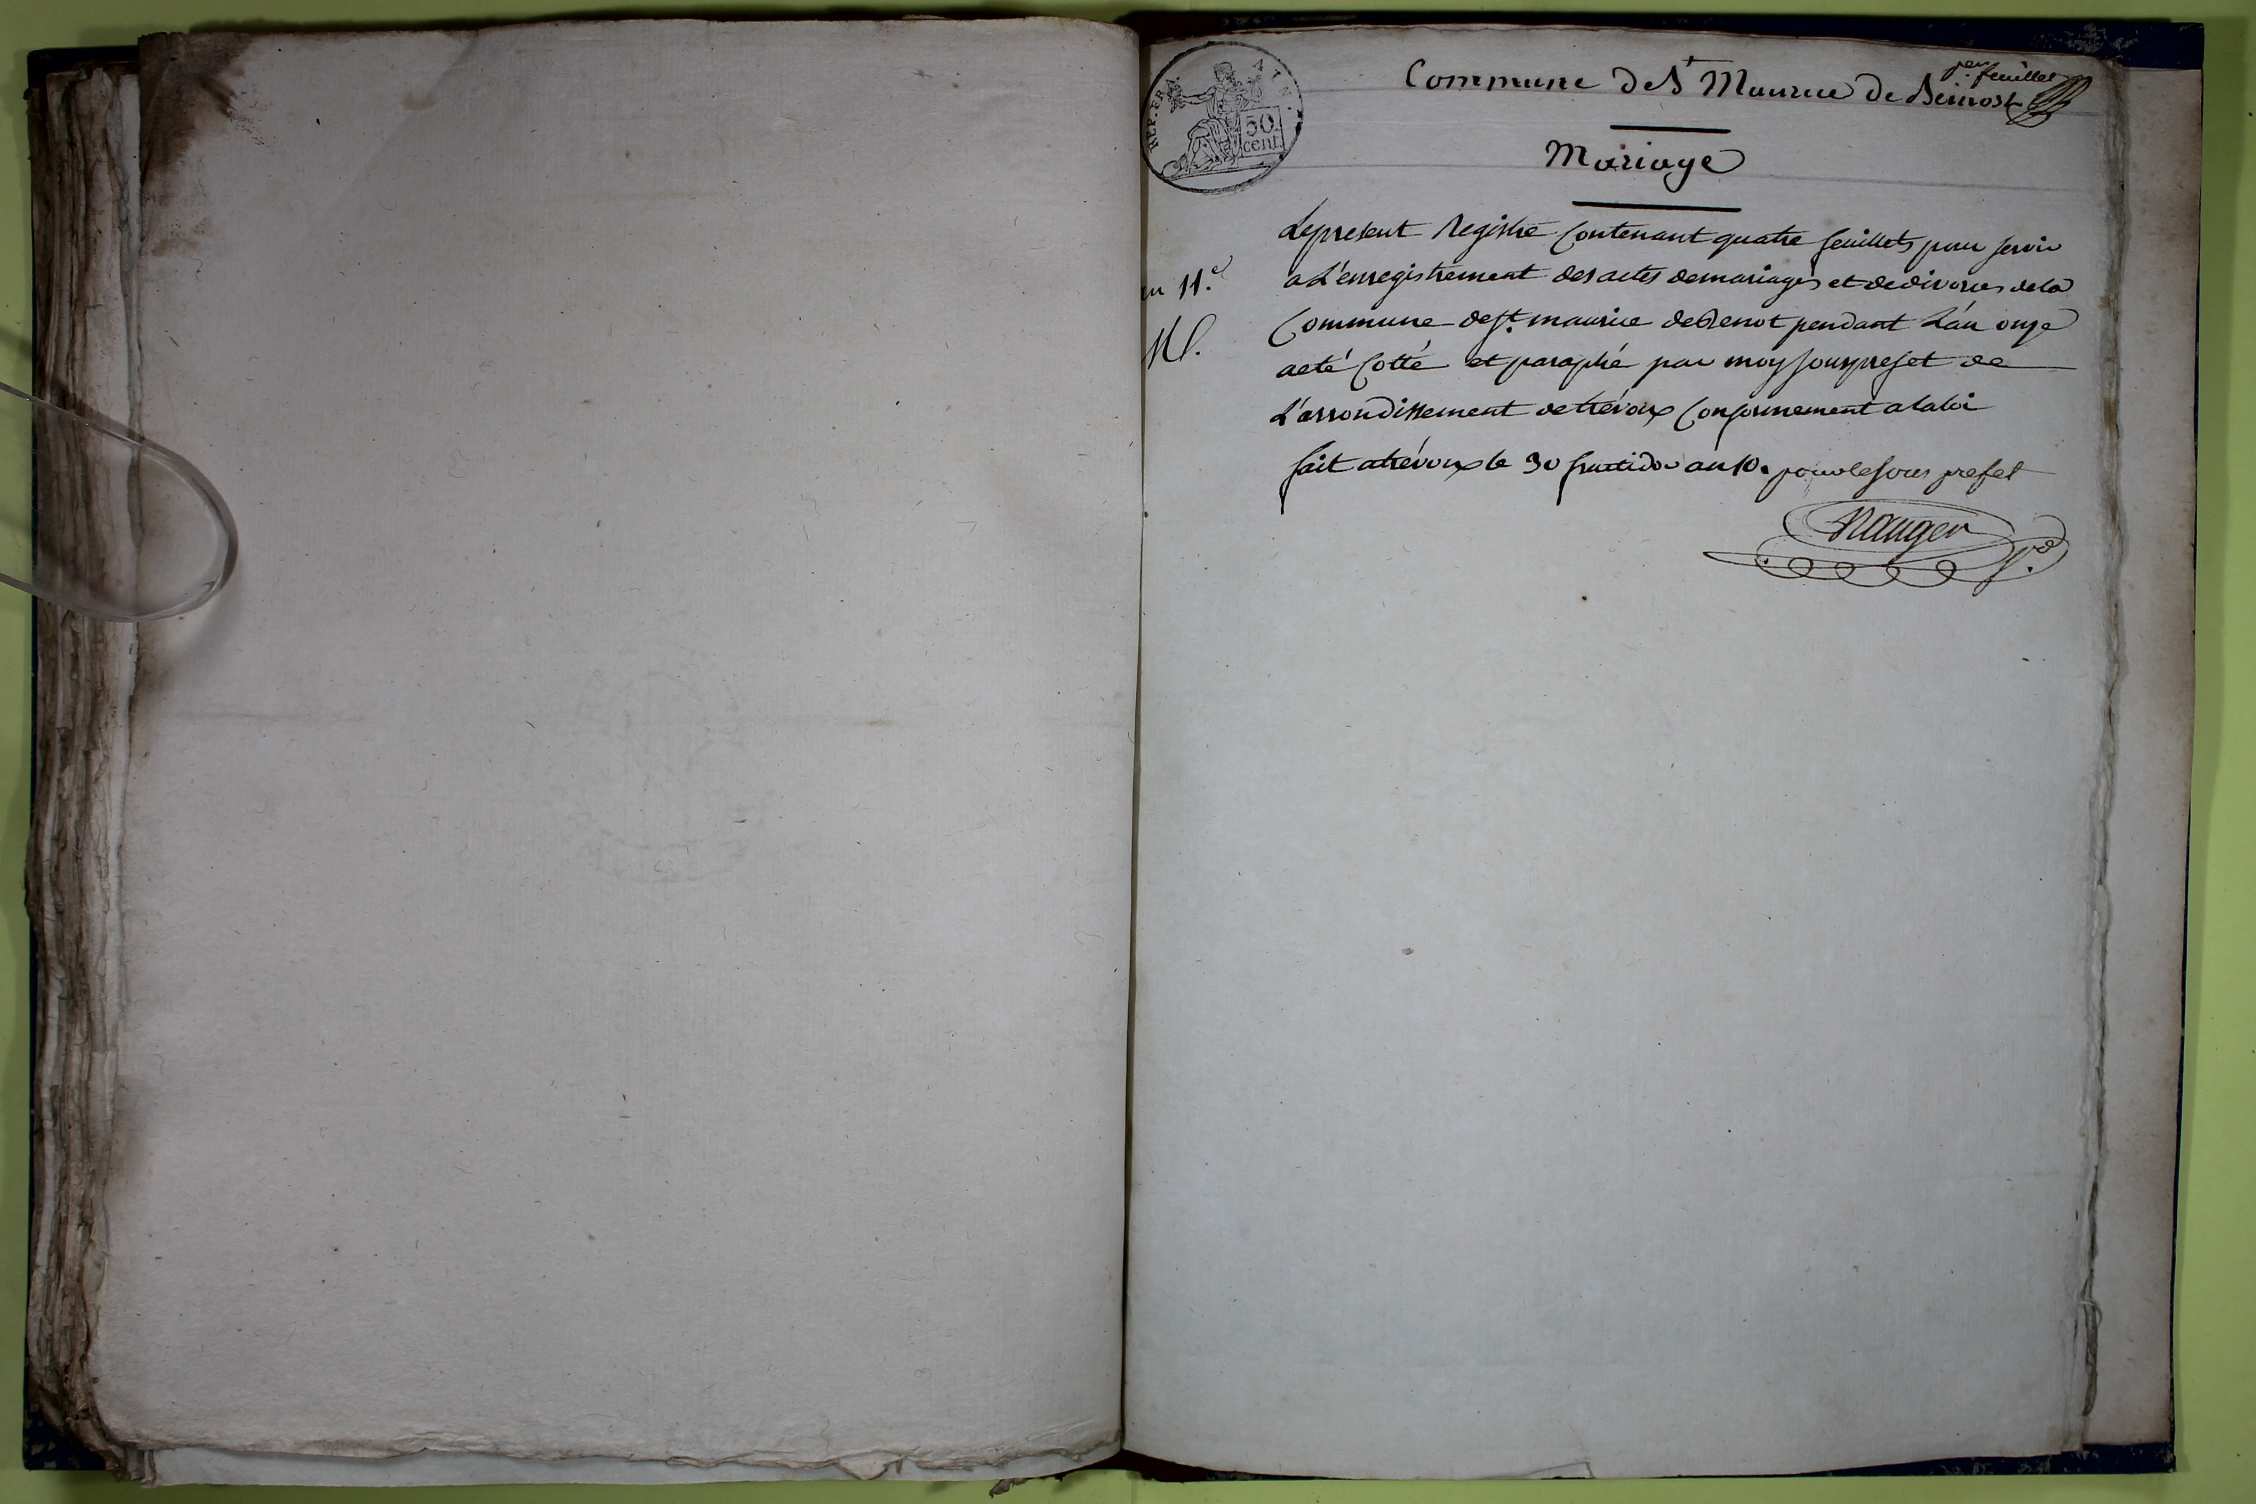 per feuillet
Commune de St Maurice de Beinost
REP. FRA. 50 cent.
Mariage
Le present Registre Contenant quatre feuillets pour servir
an 11.e a L'enregistrement des actes de mariages et de divorces de la
Commune de St. maurice de Benot pendant L'an onze
M. acté Cotté et paraphé par moy souspreset de
L'arrondissement de trévoux Conformement a la loi
fait a trévoux le 30 fructidor an 10. pour le sous prefet